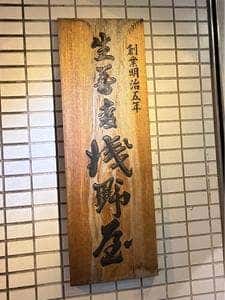 創業明治五年
生蕎麦淺野屋